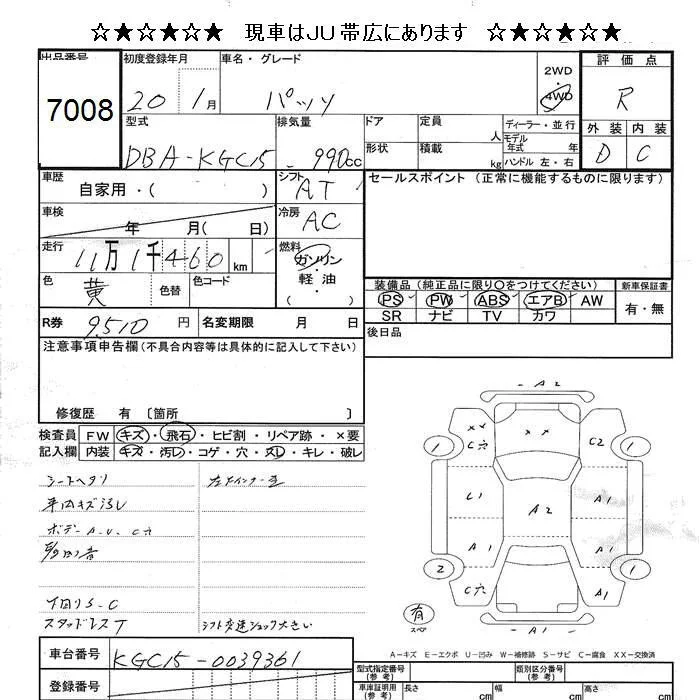 ☆★☆★☆★ 現車はJU帯広にあります ☆★☆★☆★
出品番号 初度登録年月 車名・グレード 評価点
7008 20 1月 パッソ 2WD 4WD R
型式 排気量 ドア 定員 人 ディーラー・並行 外装 内装
DBA-KGC15 990cc 形状 積載 kg モデル年式 年 ハンドル 左・右 D C
車歴 自家用・( ) シフト AT セールスポイント (正常に機能するものに限ります)
車検 年 月( 日) 冷房 AC
走行 11万1千460km 燃料 ガソリン・軽・油
色 黄 色替 色コード 装備品 (純正品に限り○をつけてください) 新車保証書
PS PW ABS エアB AW 有・無
SR ナビ TV カワ
R券 9510円 名変期限 月 日 後日品
注意事項申告欄 (不具合内容等は具体的に記入して下さい)
修復歴 有 〔箇所 〕
検査員 FW キズ・飛石・ヒビ割・リペア跡・×要
記入欄 内装 キズ・汚レ・コゲ・穴・欠レ・キレ・破レ
シートヘタリ
車内キズ汚レ
ボデーA.U.C穴
下回りS-C
スタッドレスT シフト変速ショック大きい
A2
×× C穴 ×× C2
1 1
C1 A2 A1
A1 A1
2 1
C穴 A1
有 スペア A1
A-キズ E-エクボ U-凹み W-補修跡 S-サビ C-腐食 XX-交換済
車台番号 KGC15-0039361
型式指定番号 (参考) 類別区分番号 (参考)
登録番号 車庫証明用 (参考) 長さ cm 幅 cm 高さ cm